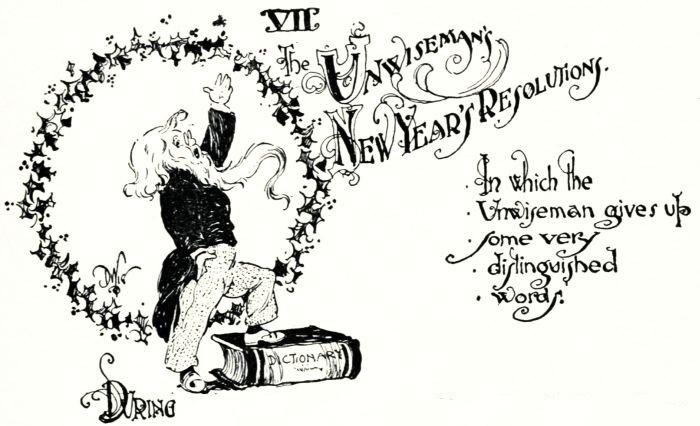 VII
The Unwiseman's
New Year's Resolutions.
In which the
Unwiseman gives up
some very
distinguished
words.
DICTIONARY
During